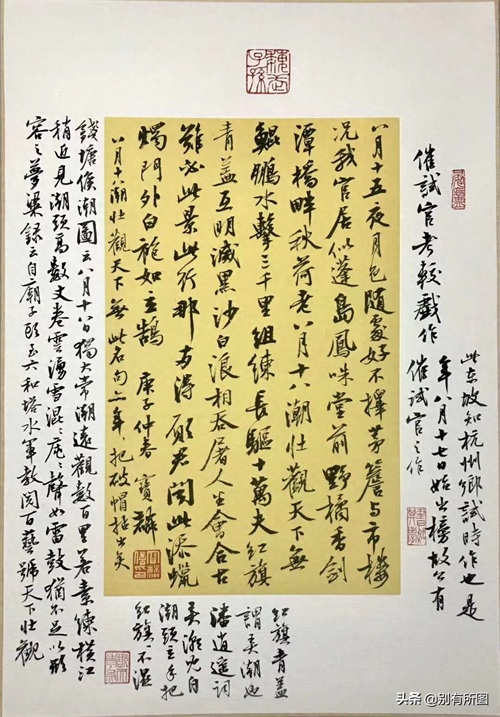 催試官考較戲作
此東坡知杭州鄉試時作也是
年八月十七日始出榜故公有
催試官之作
八月十五夜月色隨處好不擇茅簷與市樓
況我官居似蓬島鳳咮堂前野橘香劍
潭橋畔秋荷老八月十八潮壯觀天下無
鯤鵬水擊三千里組練長驅十萬夫紅旗
青蓋互明滅黑沙白浪相吞屠人生會合古
難必此景此行那兩得願君聞此添蠟
燭門外白袍如立鵠 庚子仲春 寶麟
八月十八潮壯觀天下無此名句 年把破帽
紅旗青蓋
謂弄潮也
潘逍遥詞
弄潮兒向
潮頭立手把
紅旗〻不濕
錢塘候潮圖云八月十八日獨大常潮遠觀數百里若素練橫江
稍近見潮頭高數丈卷雲湧雪混〻庵〻聲如雷鼓猶不足以形
容之夢粱錄云自廟子頭至六和塔水軍教閱百藝號天下壯觀
头条 @别有所图